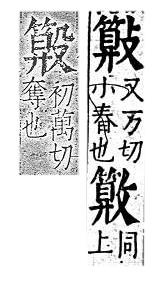 又万切
小春也
同
上
初萬切
奪也